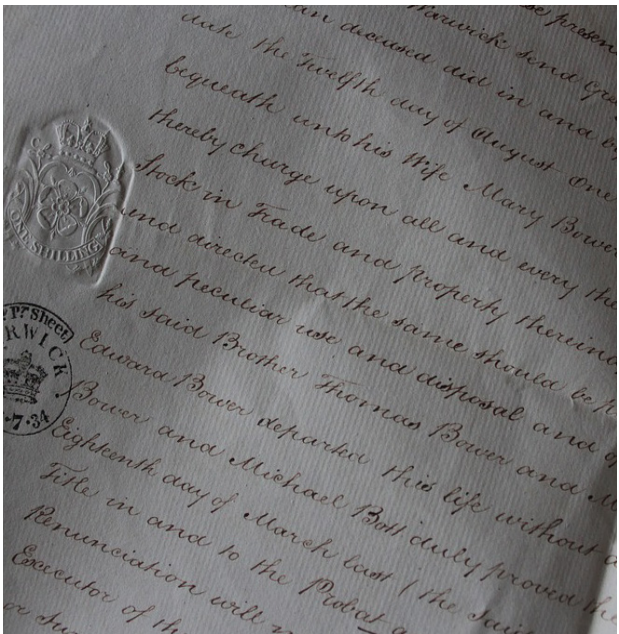 Warwick send
deceased did in and by
date the Twelfth day of August One
bequeath unto his Wife Mary Bower
thereby charge upon all and every the
Stock in Trade and property therein
and directed that the same should be
and peculiar use and disposal and of
his said Brother Thomas Bower and
Edward Bower departed this life without
Bower and Michael Bott duly proved the
Eighteenth day of March last (the said
Title in and to the Probat
Renunciation will
Executor of
ONE SHILLING
Pr Sheet
RWICK
7.34